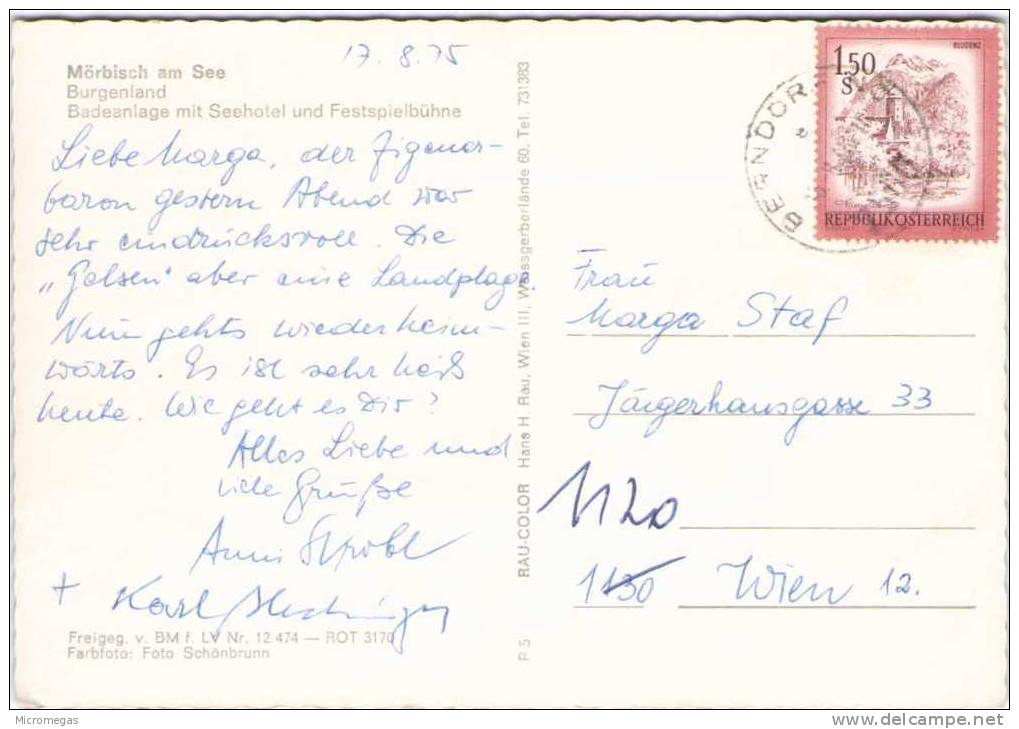 17.8.75
Mörbisch am See
Burgenland
Badeanlage mit Seehotel und Festspielbühne
Liebe Marga, der Zigeuner-
baron gestern Abend war
sehr eindrucksvoll. Die
"Gelsen" aber eine Landplage.
Nun gehts wieder heim-
wärts. Es ist sehr heiß
heute. Wie geht es Dir?
Alles Liebe und
viele Grüße
Anni Strobl
+ Karl
Freigeg. v. BM f. LV Nr. 12 474 — ROT 3170
Farbfoto: Foto Schönbrunn
P 5 RAU-COLOR Hans H. Rau, Wien III, Weissgerberlände 60, Tel. 731383
BLUDENZ
1.50
S
REPUBLIK ÖSTERREICH
BERNDOR
Frau
Marga Staf
Jaigerhausgasse 33
1120
1130 Wien 12.
Micromegas
www.delcampe.net